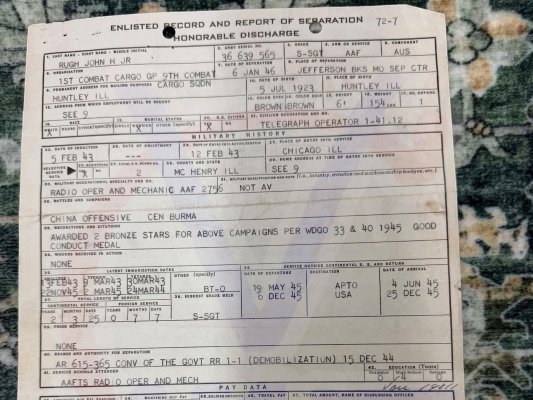 ENLISTED RECORD AND REPORT OF SEPARATION
72-7
HONORABLE DISCHARGE
1. LAST NAME - FIRST NAME - MIDDLE INITIAL
2. ARMY SERIAL NO.
3. GRADE
4. ARM OR SERVICE
5. COMPONENT
RUGH JOHN H JR
36 639 565
S-SGT
AAF
AUS
6. ORGANIZATION
7. DATE OF SEPARATION
8. PLACE OF SEPARATION
1ST COMBAT CARGO GP 9TH COMBAT
6 JAN 46
JEFFERSON BKS MO SEP CTR
9. PERMANENT ADDRESS FOR MAILING PURPOSES
CARGO SQDN
10. DATE OF BIRTH
11. PLACE OF BIRTH
HUNTLEY ILL
5 JUL 1923
HUNTLEY ILL
12. ADDRESS FROM WHICH EMPLOYMENT WILL BE SOUGHT
SEE 9
BROWN
BROWN
6'
154 LBS.
1
18. RACE
19. MARITAL STATUS
20. U.S. CITIZEN
21. CIVILIAN OCCUPATION AND NO.
X
X
X
TELEGRAPH OPERATOR 1-41.12
MILITARY HISTORY
22. DATE OF INDUCTION
23. DATE OF ENLISTMENT
24. DATE OF ENTRY INTO ACTIVE SERVICE
25. PLACE OF ENTRY INTO SERVICE
5 FEB 43
12 FEB 43
CHICAGO ILL
SELECTIVE SERVICE DATA
X
2
MC HENRY ILL
SEE 9
30. MILITARY OCCUPATIONAL SPECIALTY AND NO.
RADIO OPER AND MECHANIC AAF 2756
NOT AV
32. BATTLES AND CAMPAIGNS
CHINA OFFENSIVE CEN BURMA
33. DECORATIONS AND CITATIONS
AWARDED 2 BRONZE STARS FOR ABOVE CAMPAIGNS PER WDGO 33 & 40 1945 GOOD
CONDUCT MEDAL
34. WOUNDS RECEIVED IN ACTION
NONE
35. LATEST IMMUNIZATION DATES
36. SERVICE OUTSIDE CONTINENTAL U. S. AND RETURN
OTHER (specify)
DATE OF DEPARTURE
DESTINATION
DATE OF ARRIVAL
BT-O
19 MAY 45
APTO
4 JUN 45
22NOV45
2 MAR45
24MAR44
6 DEC 45
USA
25 DEC 45
37. TOTAL LENGTH OF SERVICE
38. HIGHEST GRADE HELD
CONTINENTAL SERVICE
FOREIGN SERVICE
YEARS
MONTHS
DAYS
YEARS
MONTHS
DAYS
S-SGT
2
3
25
0
7
7
39. PRIOR SERVICE
NONE
40. REASON AND AUTHORITY FOR SEPARATION
AR 615-365 CONV OF THE GOVT RR 1-1 (DEMOBILIZATION) 15 DEC 44
41. SERVICE SCHOOLS ATTENDED
42. EDUCATION (Years)
AAFTS RADIO OPER AND MECH
PAY DATA